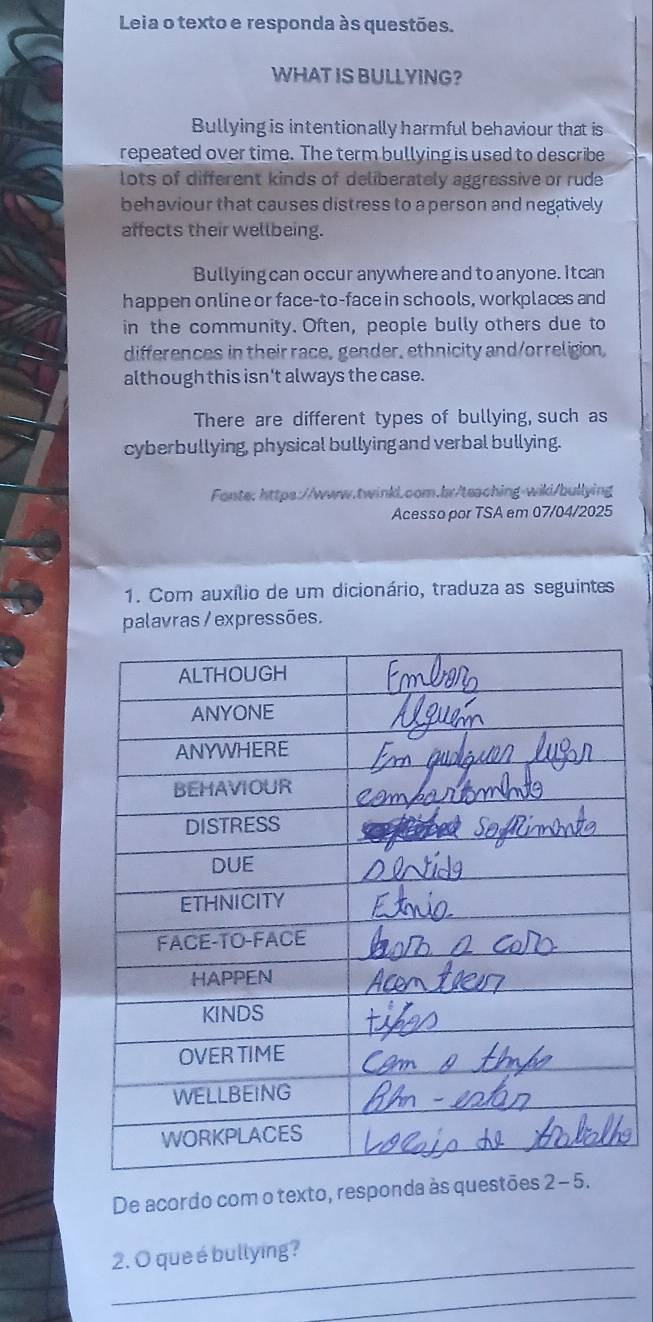 Leia o texto e responda às questões.
WHAT IS BULLYING?
Bullying is intentionally harmful behaviour that is
repeated over time. The term bullying is used to describe
lots of different kinds of deliberately aggressive or rude
behaviour that causes distress to a person and negatively
affects their wellbeing.
Bullying can occur anywhere and to anyone. It can
happen online or face-to-face in schools, workplaces and
in the community. Often, people bully others due to
differences in their race, gender, ethnicity and/or religion,
although this isn't always the case.
There are different types of bullying, such as
cyberbullying, physical bullying and verbal bullying.
Fonte: https://www.twinkl.com.br/teaching-wiki/bullying
Acesso por TSA em 07/04/2025
1. Com auxílio de um dicionário, traduza as seguintes
palavras / expressões.
ALTHOUGH Embora
ANYONE Alguém
ANYWHERE Em qualquer lugar
BEHAVIOUR comportamento
DISTRESS Sofrimento
DUE
ETHNICITY Etnia
FACE-TO-FACE cara a cara
HAPPEN Acontecer
KINDS tipos
OVER TIME Com o tempo
WELLBEING Bem-estar
WORKPLACES Locais de trabalho
De acordo com o texto, responda às questões 2 – 5.
2. O que é bullying?